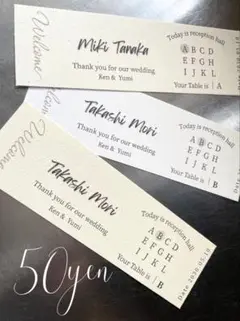 Welcome
Miki Tanaka
Thank you for our wedding
Ken & Yumi
Today is reception hall
A B C D
E F G H
I J K L
Your Table is | A
Takashi Mori
Thank you for our wedding
Ken & Yumi
Today is reception hall
A B C D
E F G H
I J K L
Your Table is | B
Welcome
Takashi Mori
Thank you for our wedding
Ken & Yumi
Today is reception hall
A B C D
E F G H
I J K L
Your Table is | B
50yen